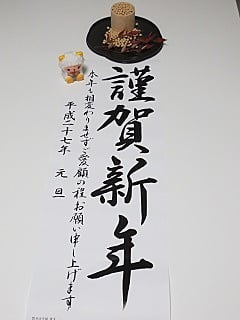 謹賀新年
本年も相変わりませずご愛顧の程お願い申し上げます
平成二十七年 元旦